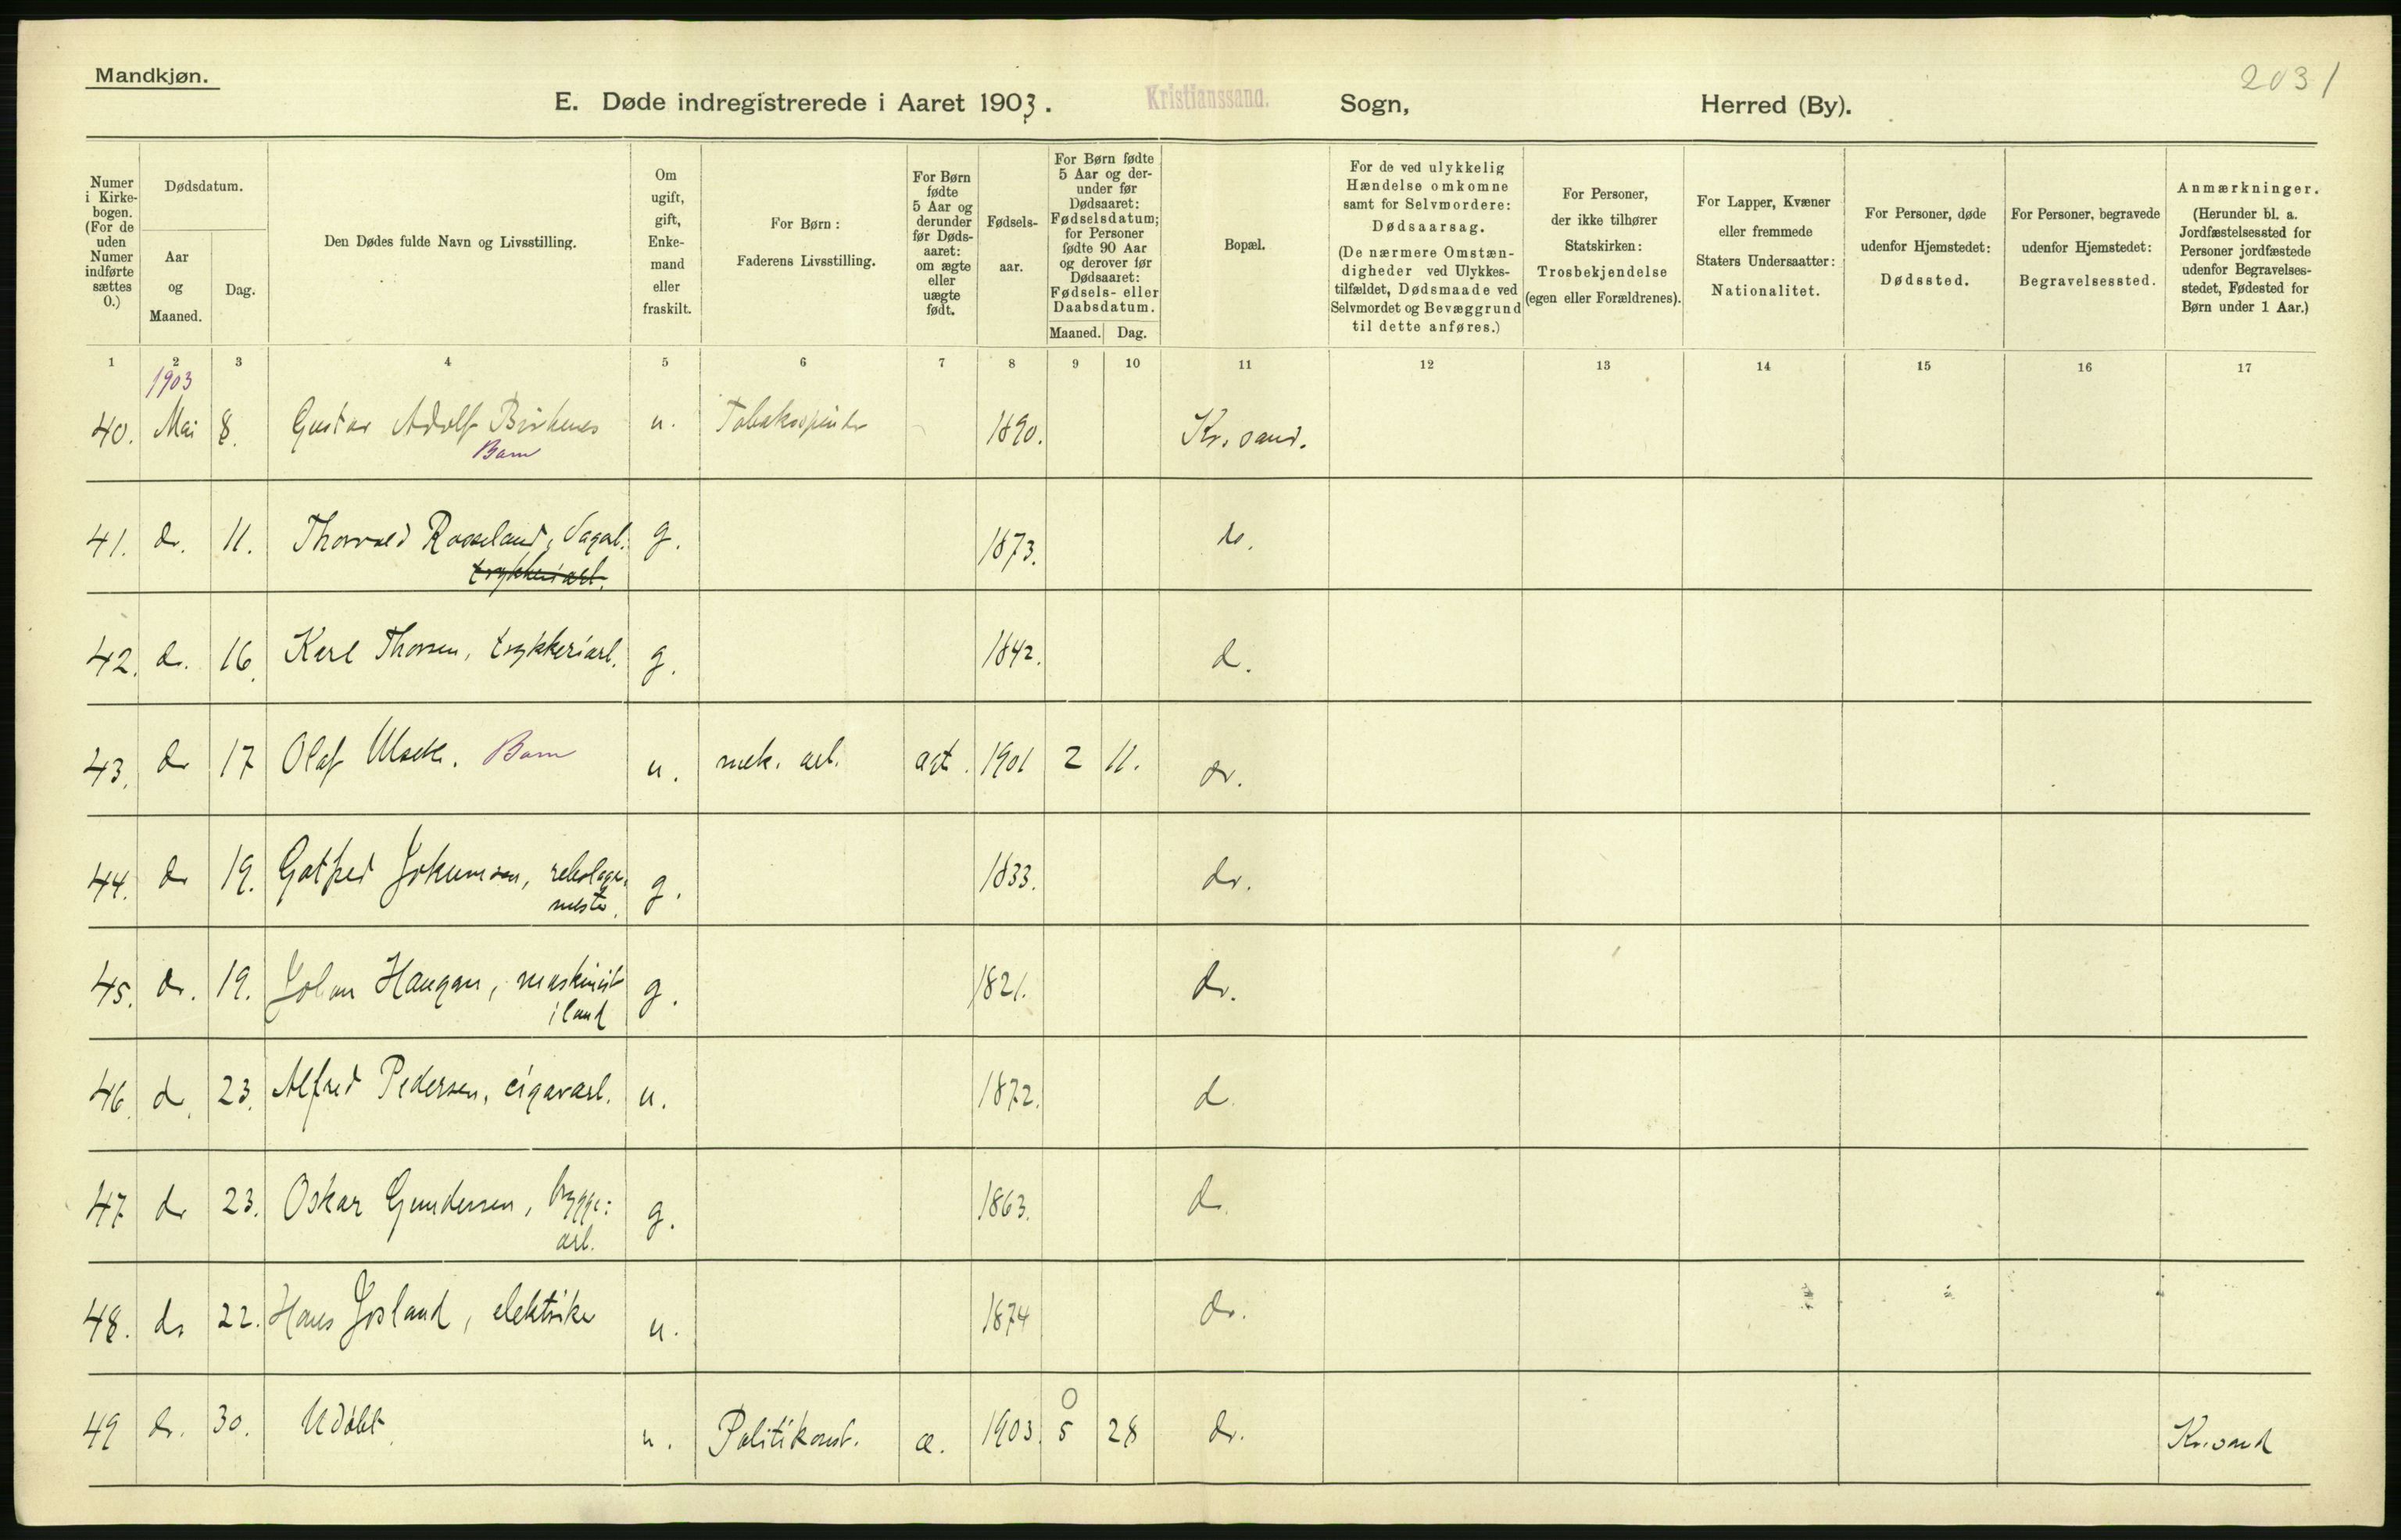 Mandkjøn.
2031
E. Døde indregistrerede i Aaret 1903. Kristianssand. Sogn, Herred (By).
Numer i Kirkebogen. (For de uden Numer indførte sættes 0.)
Dødsdatum.
Aar og Maaned.
Dag.
Den Dødes fulde Navn og Livsstilling.
Om ugift, gift, Enkemand eller fraskilt.
For Børn: Faderens Livsstilling.
For Børn fødte 5 Aar og derunder før Dødsaaret: om ægte eller uægte født.
Fødselsaar.
For Børn fødte 5 Aar og derunder før Dødsaaret: Fødselsdatum; for Personer fødte 90 Aar og derover før Dødsaaret: Fødsels- eller Daabsdatum.
Maaned. Dag.
Bopæl.
For de ved ulykkelig Hændelse omkomne samt for Selvmordere: Dødsaarsag. (De nærmere Omstændigheder ved Ulykkestilfældet, Dødsmaade ved Selvmordet og Bevæggrund til dette anføres.)
For Personer, der ikke tilhører Statskirken: Trosbekjendelse (egen eller Forældrenes).
For Lapper, Kvæner eller fremmede Staters Undersaatter: Nationalitet.
For Personer, døde udenfor Hjemstedet: Dødssted.
For Personer, begravede udenfor Hjemstedet: Begravelsessted.
Anmærkninger. (Herunder bl. a. Jordfæstelsessted for Personer jordfæstede udenfor Begravelsesstedet, Fødested for Børn under 1 Aar.)
1 2 3 4 5 6 7 8 9 10 11 12 13 14 15 16 17
1903
40. Mai 8. Gustav Adolf Birkenes u. Tobakspinder 1890. Kr.sand.
Barn
41. do. 11. Thorvald Rosseland, Dagarb. g. 1873. do.
trykkeriarb.
42. do. 16. Karl Thorsen, trykkeriarb. g. 1842. do.
43. do 17 Olaf Barn u. mek. arb. ægt. 1901 2 11. do.
44. do 19. Gotfred Jokumsen, rebslager g. 1833. do.
mester.
45. do. 19. Johan Haugan, maskinist g. 1821. do.
i land
46. do. 23. Alfred Pedersen, cigararb. u. 1872. do
47 do 23. Oskar Gundersen, brygge: g. 1863. do.
arb.
48. do 22. Hans Josland, elektriker u. 1874 do.
0
49 do. 30. Udøbt u. Politikonst. æ. 1903. 5 28 do. Kr.sand